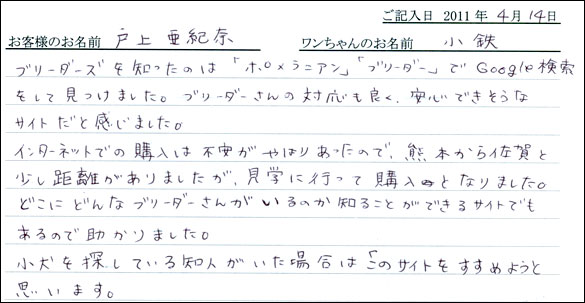 ご記入日 2011年 4月 14日
お客様のお名前 戸上 亜紀奈 ワンちゃんのお名前 小 鉄
ブリーダーズを知ったのは「ポメラニアン」「ブリーダー」でGoogle検索
をして見つけました。ブリーダーさんの対応も良く、安心できそうな
サイトだと感じました。
インターネットでの購入は不安がやはりあったので、熊本から佐賀と
少し距離がありましたが、見学に行って購入となりました。
どこにどんなブリーダーさんがいるのか知ることができるサイトでも
あるので助かりました。
小犬を探している知人がいた場合は「このサイトをすすめようと
思います。